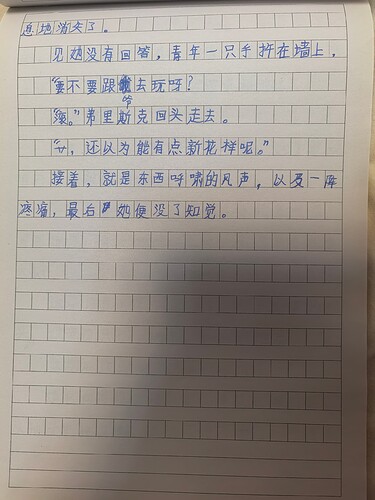 息地消失了。
见她没有回答，青年一只手拃在墙上，
“要不要跟爷去玩呀？
“滚。”弗里斯克回头走去。
“せ，还以为能有点新花样呢。”
接着，就是东西呼啸的风声，以及一阵
疼痛，最后她便没了知觉。